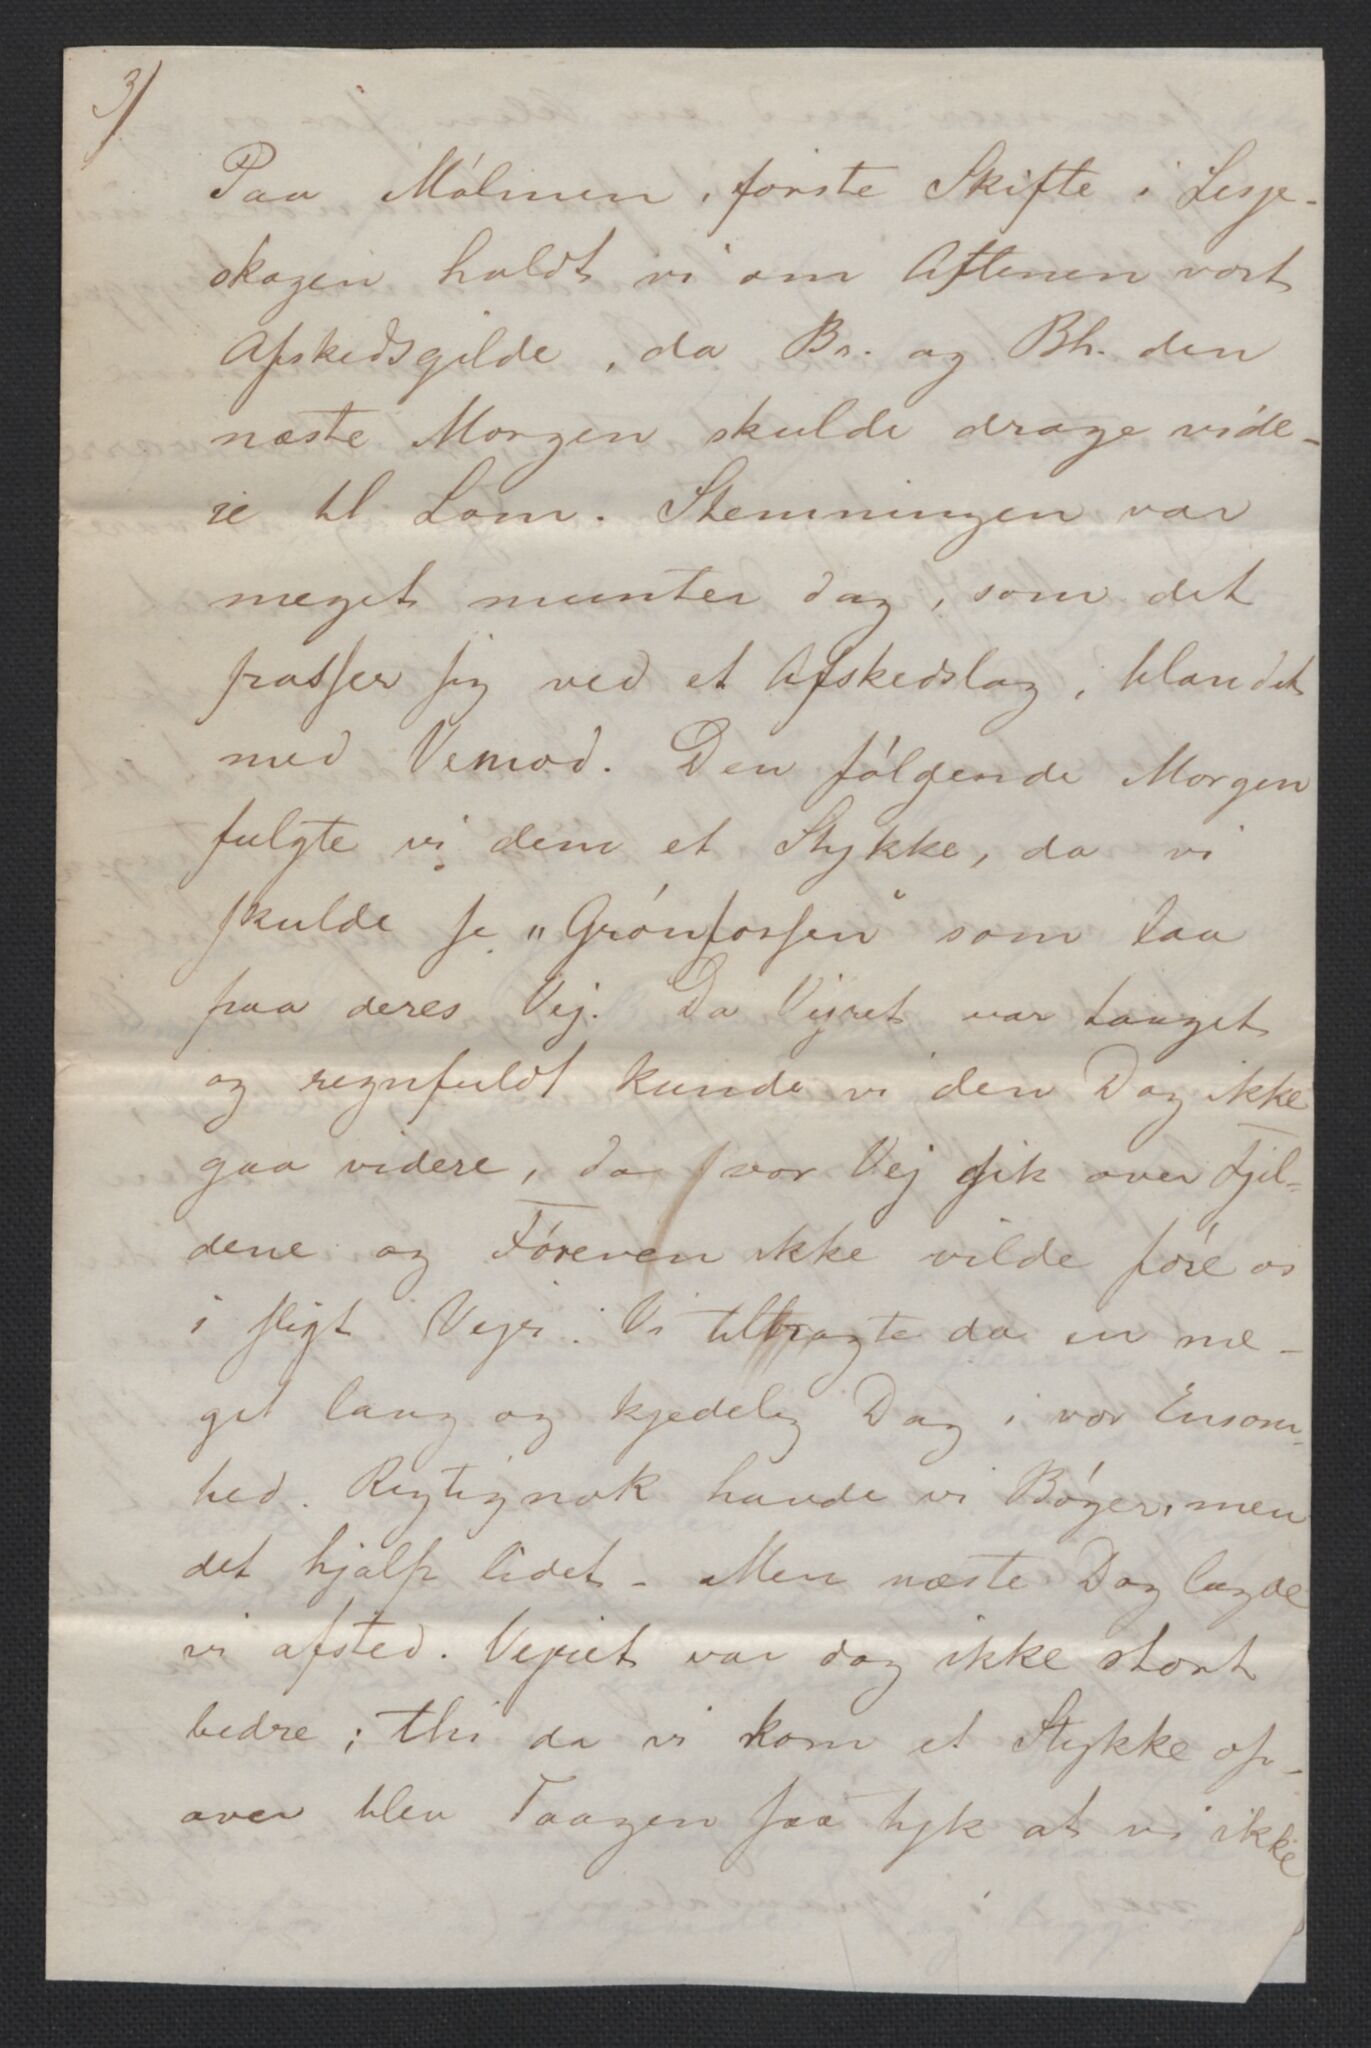 3/
Paa Mólmen, förste Skifte i Lesje-
skogen holdt vi om Aftenen vort
Afskedsgilde, da Br. og Bh. den
næste Morgen skulde drage vide-
re til Lom. Stemningen var
meget munter dog, som det
passer sig ved et Afskedslag, blandet
med Vemod. Den fólgende Morgen
fulgte vi dem et Stykke, da vi
skulde se "Grónfossen" som laa
paa deres Vej. Da Vejret var taaget
og regnfuldt kunde vi den Dag ikke
gaa videre, da vor Vej gik over Fjel-
dene og Fóreren ikke vilde fóre os
i sligt Vejr. Vi tilbragte da en me-
get lang og kjedelig Dag i vor Ensom-
hed. Rigtignok havde vi Bóger, men
det hjalp lidet - Men næste Dag lagde
vi afsted. Vejret var dog ikke stort
bedre; thi da vi kom et Stykke op-
over blev Taagen saa tyk at vi ikke